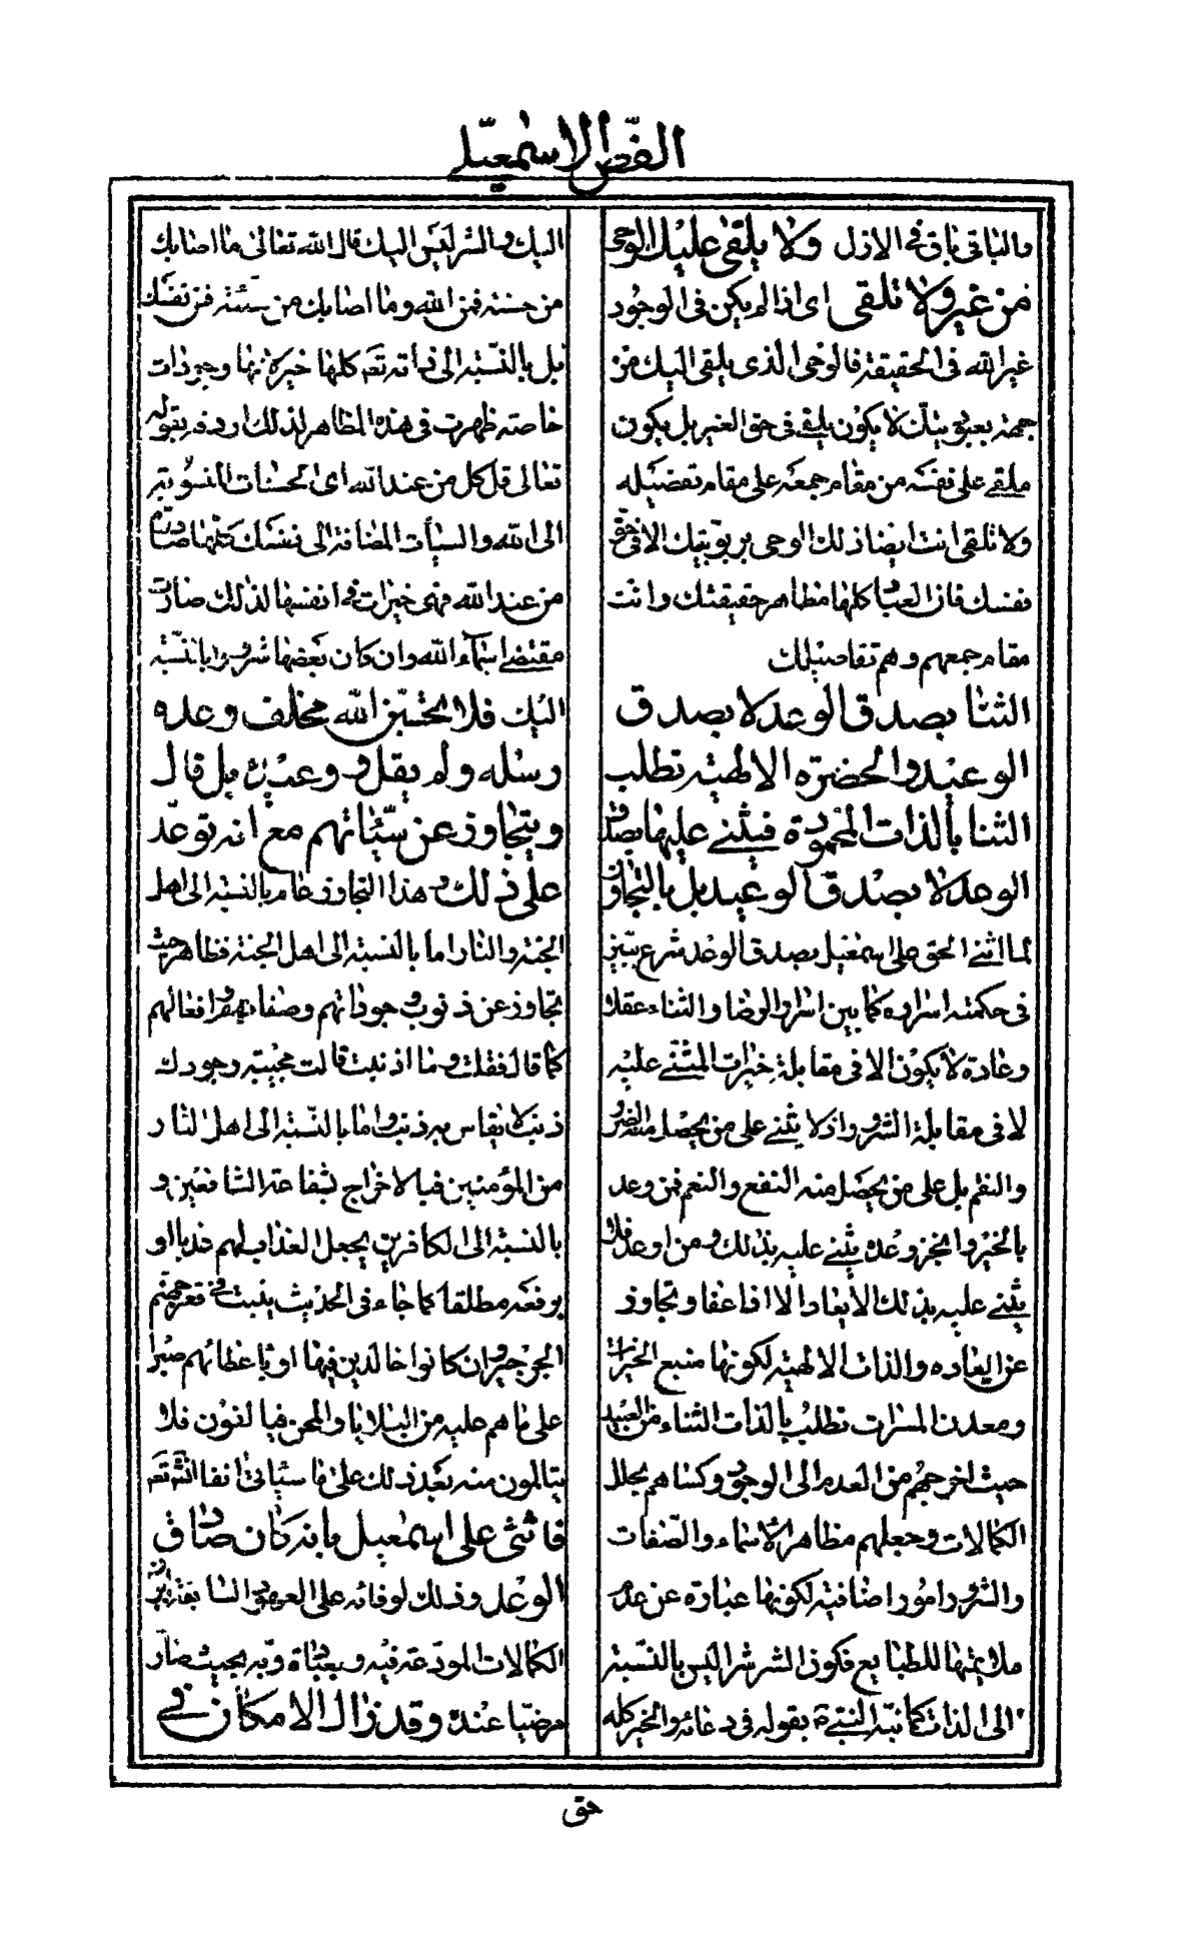 الفصّ الاسمعيلے
والباقى باق فى الازل ولا يلقى عليك الوحى
من غير ولا تلقى اى اذا لم يكن فى الوجود
غير الله فى الحقيقة فالوحى الذى يلقى اليك من
جهة عبوديتك لا يكون يلقى فى حق الغير بل يكون
ملقى على نفسه من مقام جمعه على مقام تفصيله
ولا تلقى انت ايضا ذلك الوحى بربوبيتك الا فى حق
نفسك فان العباد كلها مظاهر حقيقتك وانت
مقام جمعهم وهم تفاصيلك
الثنا بصدق الوعد لا بصدق
الوعيد والحضرة الالهية تطلب
الثنا بالذات المحمودة فيثنى عليها بصدق
الوعد لا بصدق الوعيد بل بالتجاوز
لما اثنى الحق على اسمعيل بصدق الوعد شرع يبين
فى حكمته اسراره كما بين اسرار الرضا والثناء عقلا
وعادة لا يكون الا فى مقابلة خيرات المثنى عليه
لا فى مقابلة الشرور اذ لا يثنى على من يحصل منه الضرر
والنقم بل على من يحصل منه النفع والنعم فمن وعد
بالخير وانجز وعده يثنى عليه بذلك ومن اوعد فلا
يثنى عليه بذلك الايعاد الا اذا عفا وتجاوز
عن ايعاده والذات الالهية لكونها منبع الخيرات
ومعدن المسرات تطلب بالذات الثناء من العبيد
حيث اخرجهم من العدم الى الوجود وكساهم بحلل
الكمالات وجعلهم مظاهر الاسماء والصّفات
والشرور امور اضافية لكونها عبارة عن عدم
ملائمتها للطبايع فكون الشر شرا ليس بالنسبة
الى الذات كما نبه النبى ص بقوله فى دعائه والخير كله
اليك والشر ليس اليك قال الله تعالى ما اصابك
من حسنة فمن الله وما اصابك من سيّئة فمن نفسك
بل بالنسبة الى ذاته تع كلها خير لانها وجودات
خاصة ظهرت فى هذه المظاهر لذلك اردفه بقوله
تعالى قل كل من عند الله اى الحسنات المنسوبة
الى الله والسيأت المضافة الى نفسك كلها صادرة
من عند الله فهى خيرات فى انفسها لذلك صارت
مقتضى اسمآء الله وان كان بعضها شرورا بالنسبة
اليك فلا تحسبنّ الله مخلف وعده
رسله ولم يقل ووعيده بل قال
ويتجاوز عن سيّئاتهم مع انه توعّد
على ذلك وهذا التجاوز عام بالنسبة الى اهل
الجنة والنار اما بالنسبة الى اهل الجنة فظاهر حيث
تجاوز عن ذنوب وجوداتهم وصفاتهم وافعالهم
كما قال فقلت وما اذنبت قالت مجيبة وجودك
ذنب لا يقاس به ذنب واما بالنسبة الى اهل النار
من المؤمنين فبالاخراج بشفاعة الشافعين و
بالنسبة الى الكافرين بجعل العذاب لهم عذبا او
برفعه مطلقا كما جاء فى الحديث ينبت فى قعر جهنم
الجرجير وان كانوا خالدين فيها او باعطائهم صبرا
على ما هم عليه من البلايا والمحن فيالفون فلا
يتالمون منه بعد ذلك على ما سيأتى انشا الله تع
فاثنى على اسمعيل بانه كان صادق
الوعد وذلك لوفائه على العهود السابقة
الكمالات المودعة فيه وبعبادة ربه بحيث صار
مرضيا عنده وقد زال الامكان فے
حق